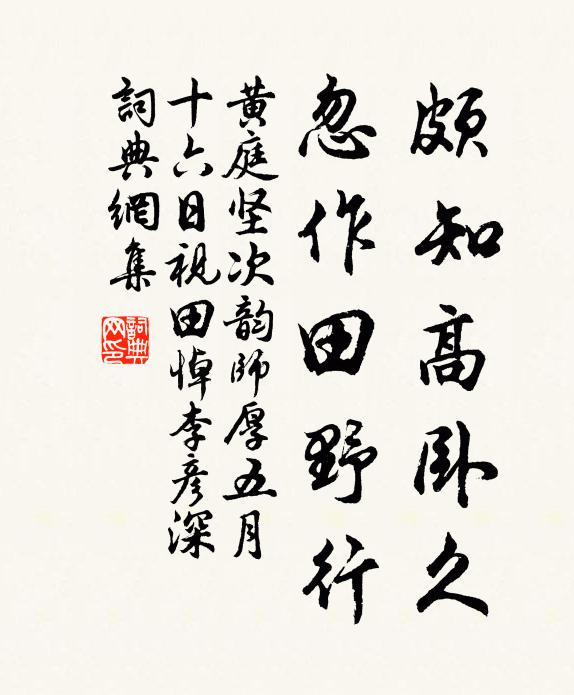 頗知高卧久
忽作田野行
黄庭坚次韵師厚五月
十六日視田悼李彦深
詞典網集
詞典網印